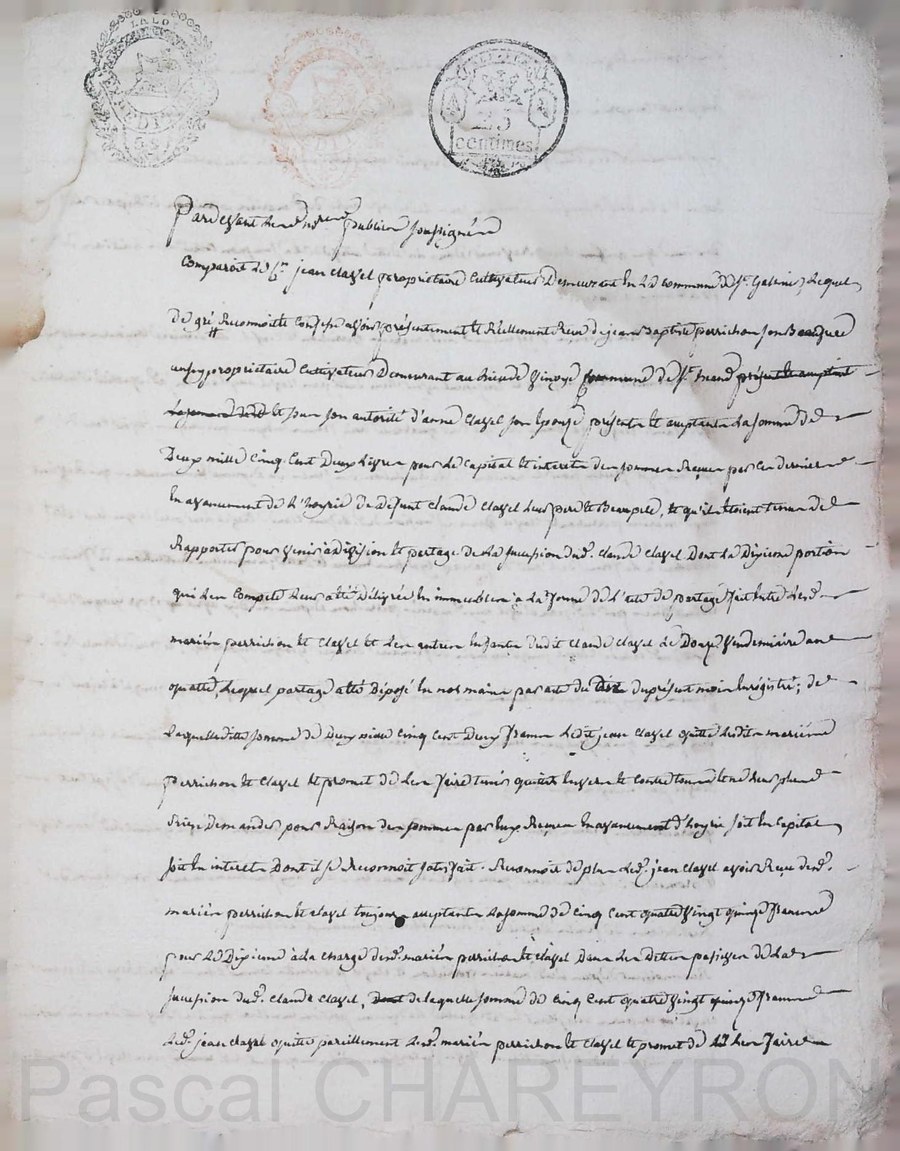 LA LOI
25
centimes
Pardevant les no.res publics soussignés
Comparoit le C.en jean clavel proprietaire Cultivateur Demeurant en la commune de S.t Galmier, Lequel
de gré Reconnoit et Confesse avoir présentement et Réellement Reçu de jean Baptiste perrichon son Beaufrere
proprietaire Cultivateur Demeurant au lieu de commune de S.t présent et acceptant
et sur son autorité d'anne Clavel son Epouse présente et acceptante La somme de
Deux mille Cinq Cent Deux Livres pour le Capital et interets des sommes Reçues par ces derniers
En avancement de l'hoyrie de Défunt Claude Clavel Leur pere et Beaupere, et qu'ils étoient tenus de
Rapporter pour venir à Division et partage de la succession dud. Claude Clavel Dont la Dixieme portion
qui leur Compete Leur a été Délivrée en immeubles à la forme de l'acte de partage fait entre lesd.
mariés perrichon et Clavel et les autres Enfants dudit Claude Clavel le Douze Vendemiaire an
quatre, Lequel partage a été Déposé en nos mains par acte du dix du présent mois Enrégistré; de
Laquelle ditte somme de Deux mille Cinq Cent Deux francs Ledit jean Clavel quitte Lesdits mariés
perrichon et Clavel et promet de les faire tenir quittes Envers et Contre tous et ne leur plus
Demander pour Raison des sommes par Eux Reçues En avancement d'hoyrie soit En Capital
soit En interets Dont il se Reconnoit satisfait. Reconnoit de plus Led. jean Clavel avoir Reçu desd.
mariés perrichon et Clavel toujours acceptants La somme de Cinq Cent quatre Vingt quinze francs
pour le Dixieme à la charge desd. mariés perrichon et Clavel Dans les dettes passives de la
succession dud. Claude Clavel, de laquelle somme de Cinq Cent quatre Vingt quinze francs
Led. jean Clavel quitte pareillement Lesd. mariés perrichon et Clavel et promet de les faire
Pascal CHAREYRON